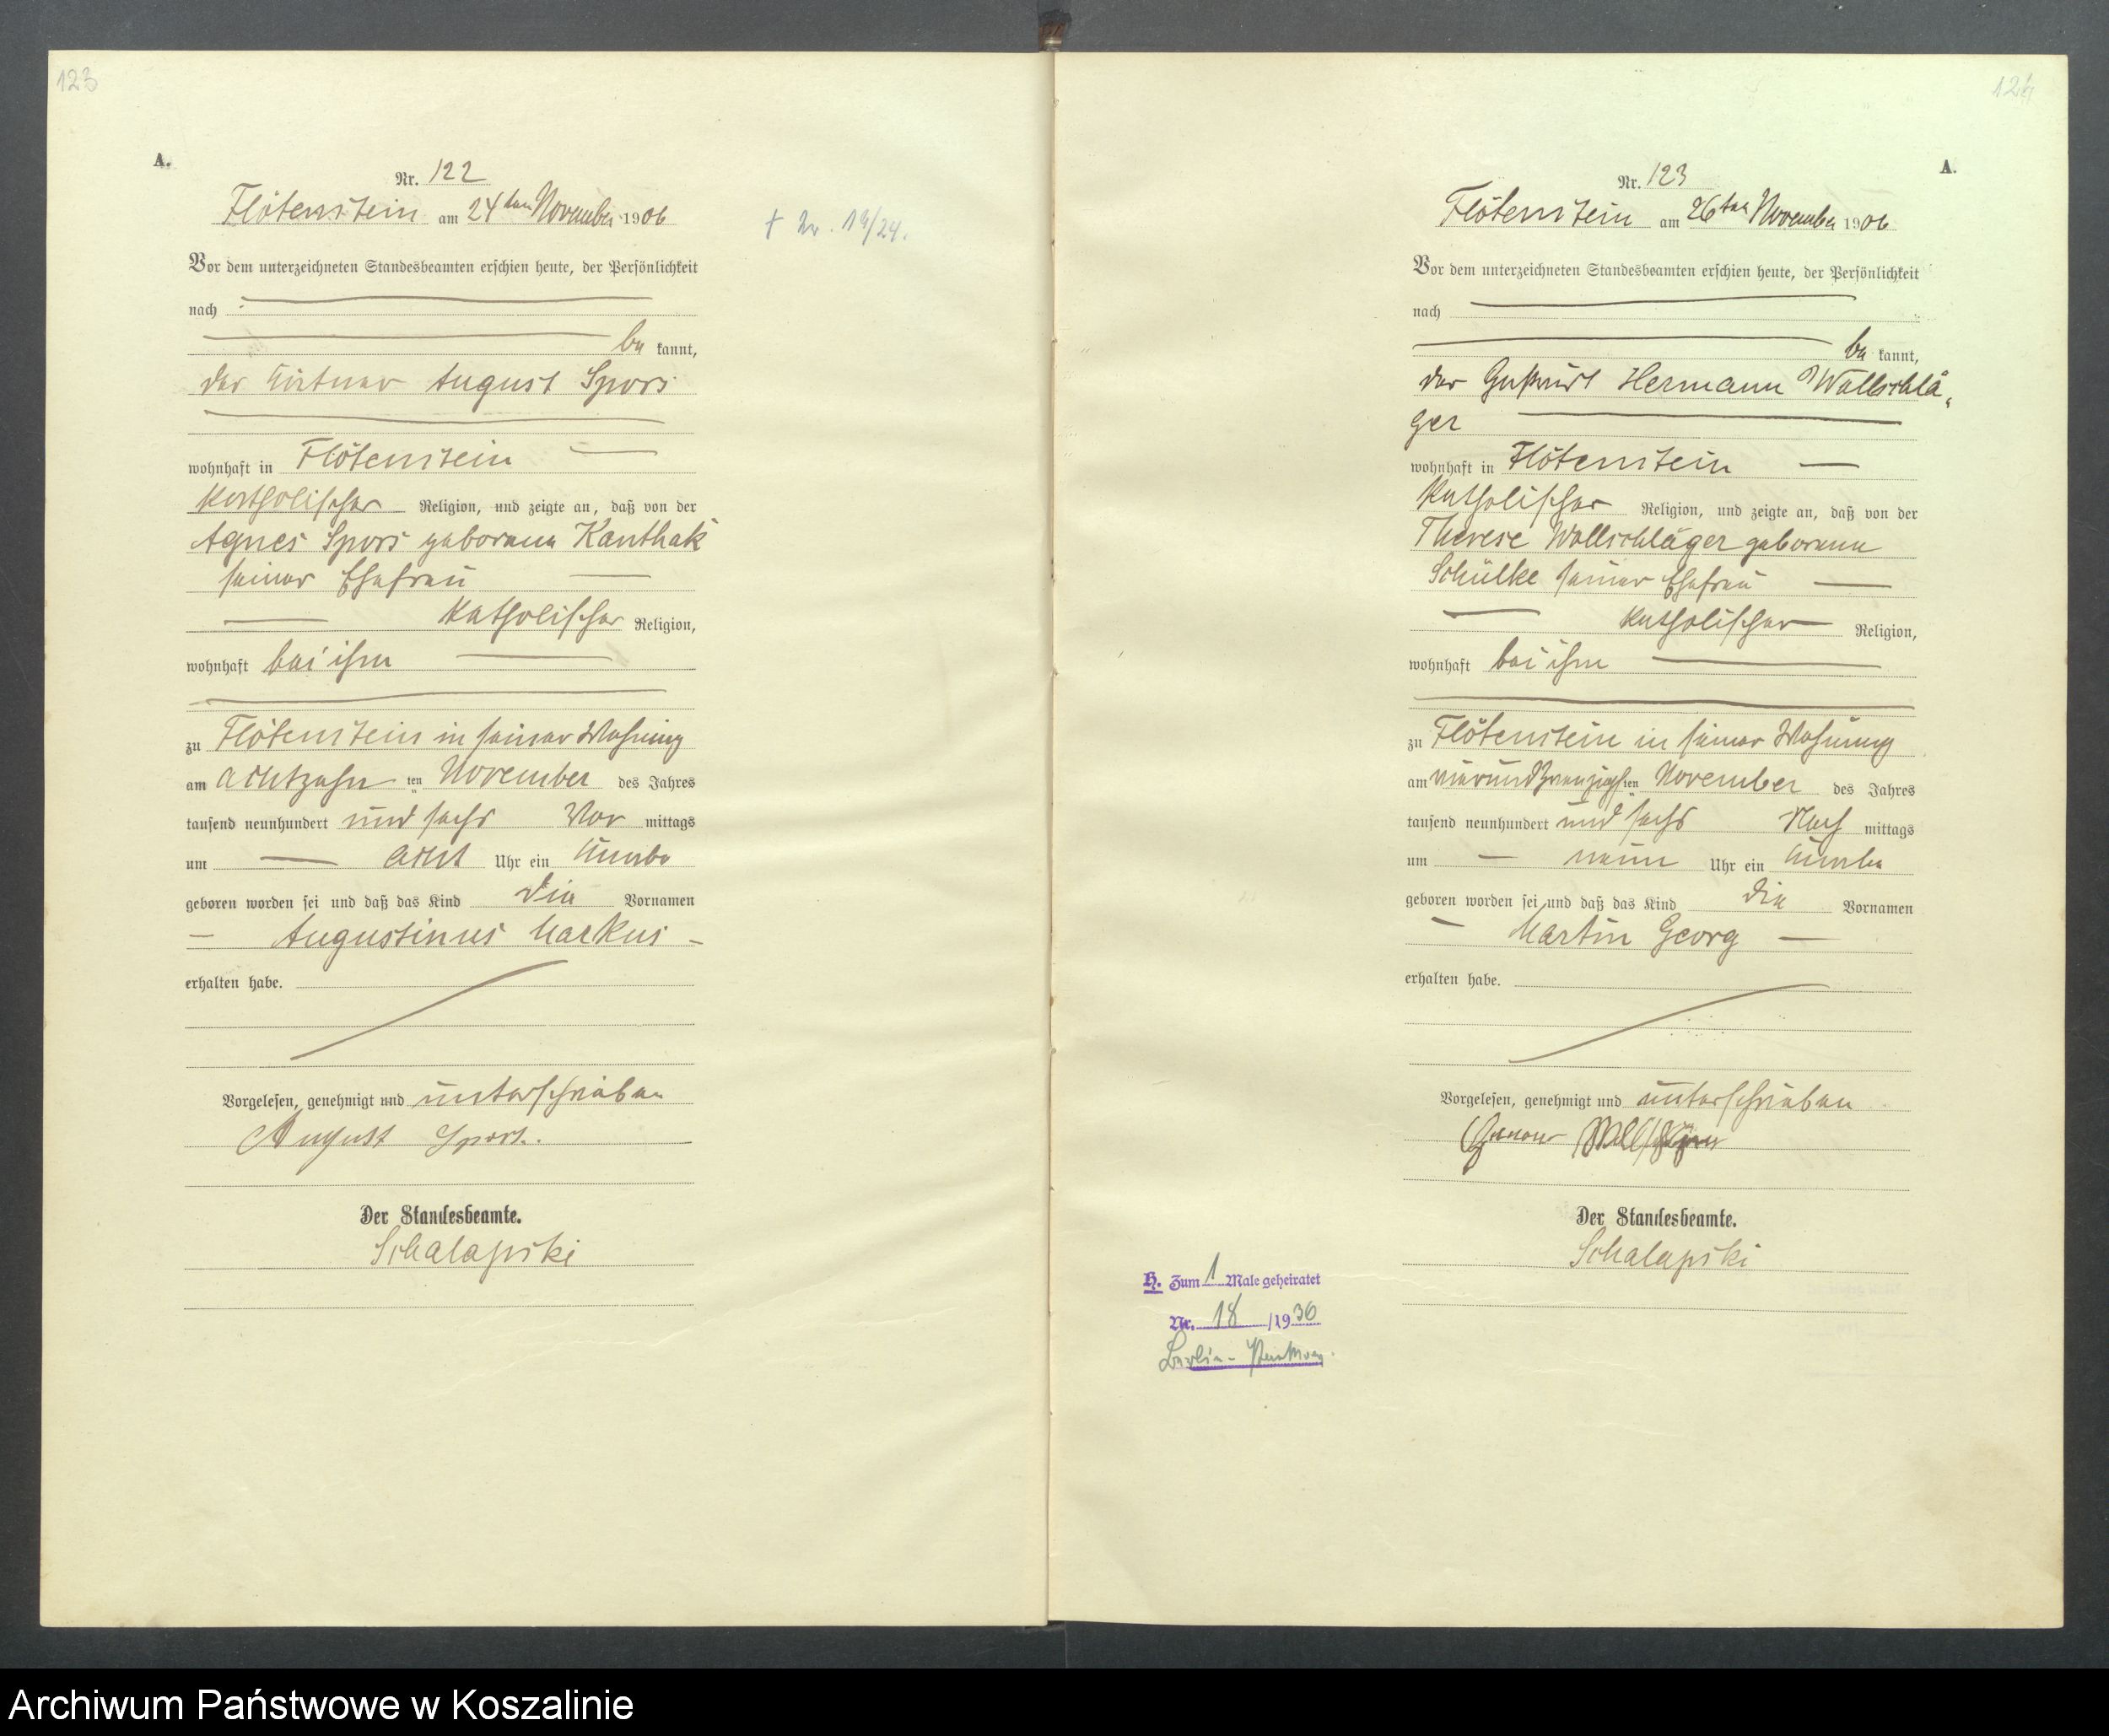 123
A.
Nr. 122
Flötenstein am 24ten November 1906
† Nr. 19/24.
Vor dem unterzeichneten Standesbeamten erschien heute, der Persönlichkeit
nach
be kannt,
der August Spors
wohnhaft in Flötenstein
katholischer Religion, und zeigte an, daß von der
Agnes Spors geborene Kanthak
seiner Ehefrau
katholischer Religion,
wohnhaft bei ihm
zu Flötenstein in seiner Wohnung
am achtzehn ten November des Jahres
tausend neunhundert und sechs Vor mittags
um acht Uhr ein Knabe
geboren worden sei und daß das Kind die Vornamen
Augustinus Markus
erhalten habe.
Vorgelesen, genehmigt und unterschrieben
August Spors.
Der Standesbeamte.
Schalapski
124
A.
Nr. 123
Flötenstein am 26ten November 1906
Vor dem unterzeichneten Standesbeamten erschien heute, der Persönlichkeit
nach
be kannt,
der Gastwirt Hermann Wollschlä-
ger
wohnhaft in Flötenstein
katholischer Religion, und zeigte an, daß von der
Therese Wollschläger geborene
Schülke seiner Ehefrau
katholischer Religion,
wohnhaft bei ihm
zu Flötenstein in seiner Wohnung
am vierundzwanzigsten November des Jahres
tausend neunhundert und sechs Nach mittags
um neun Uhr ein Knabe
geboren worden sei und daß das Kind die Vornamen
Martin Georg
erhalten habe.
Vorgelesen, genehmigt und unterschrieben
Herman Wollschläger
Der Standesbeamte.
Schalapski
H. Zum 1 Male geheiratet
Nr. 18 /1936
Berlin-
Archiwum Państwowe w Koszalinie